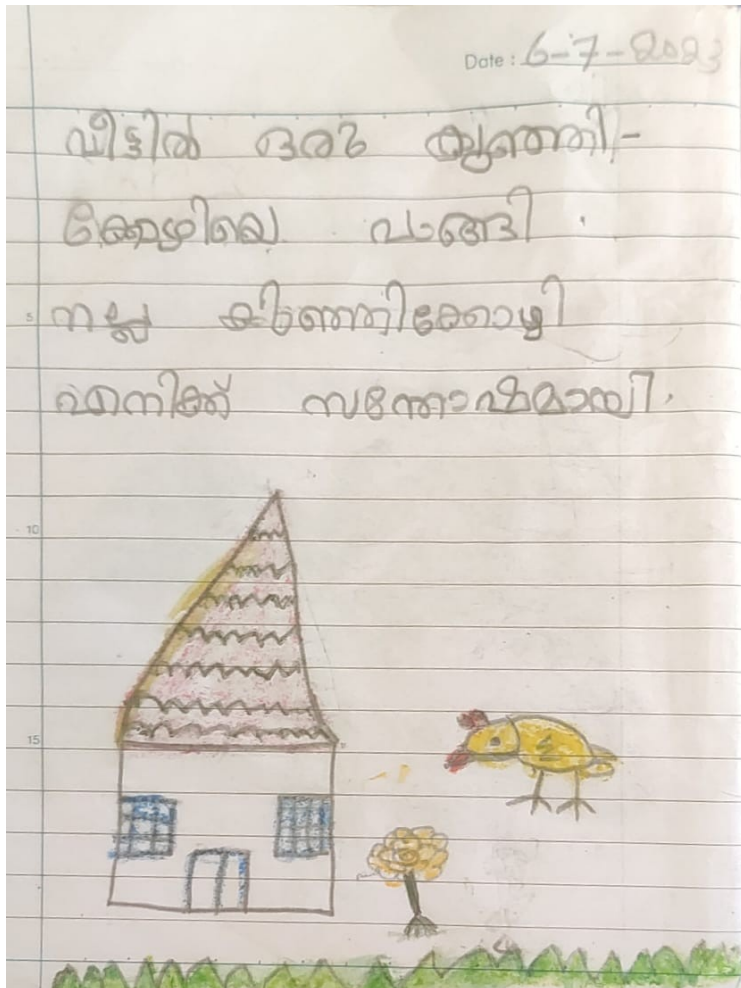 Date : 6-7-2023
വീട്ടിൽ ഒരു കുഞ്ഞി-
ക്കോഴിയെ വാങ്ങി .
5 നല്ല കിഞ്ഞിക്കോഴി
എനിക്ക് സന്തോഷമായി.
10
15